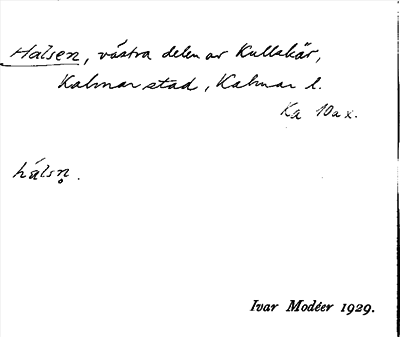 Halsen, västra delen av Kullskär,
Kalmar stad, Kalmar l.
Ka 10a x.
hálsn̥.
Ivar Modéer 1929.